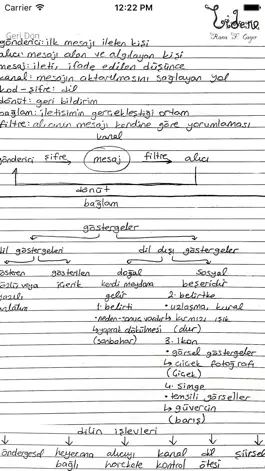 Carrier 12:22 PM
Geri Don
gönderici: ilk mesajı ileten kişi
alıcı: mesajı alan ve algılayan kişi
mesaj: ileti, ifade edilen düşünce
kanal: mesajın aktarılmasını sağlayan yol
kod-şifre: dil
dönüt: geri bildirim
bağlam: iletisimin gerçekleştiği ortam
filtre: alıcının mesajı kendine göre yorumlaması
kanal
gönderici şifre mesaj filtre alıcı
dönüt
bağlam
göstergeler
dil göstergeleri dil dışı göstergeler
gösteren gösterilen doğal sosyal
sözlü veya içerik kendi meydana beşeridir
yazılı gelir 2. belirtke
anlatım 1. belirti • uzlaşma, kural
• neden-sonuç vardır ↳ kırmızı ışık
↳ yaprak dökülmesi (dur)
(sonbahar) 3. ikon
• görsel göstergeler
↳ çiçek fotoğrafı
(çiçek)
4. simge
• temsili görseller
↳ güvercin
(barış)
dilin işlevleri
göndergesel heyecana alıcıyı kanal dil şiirsel
bağlı harekete kontrol ötesi